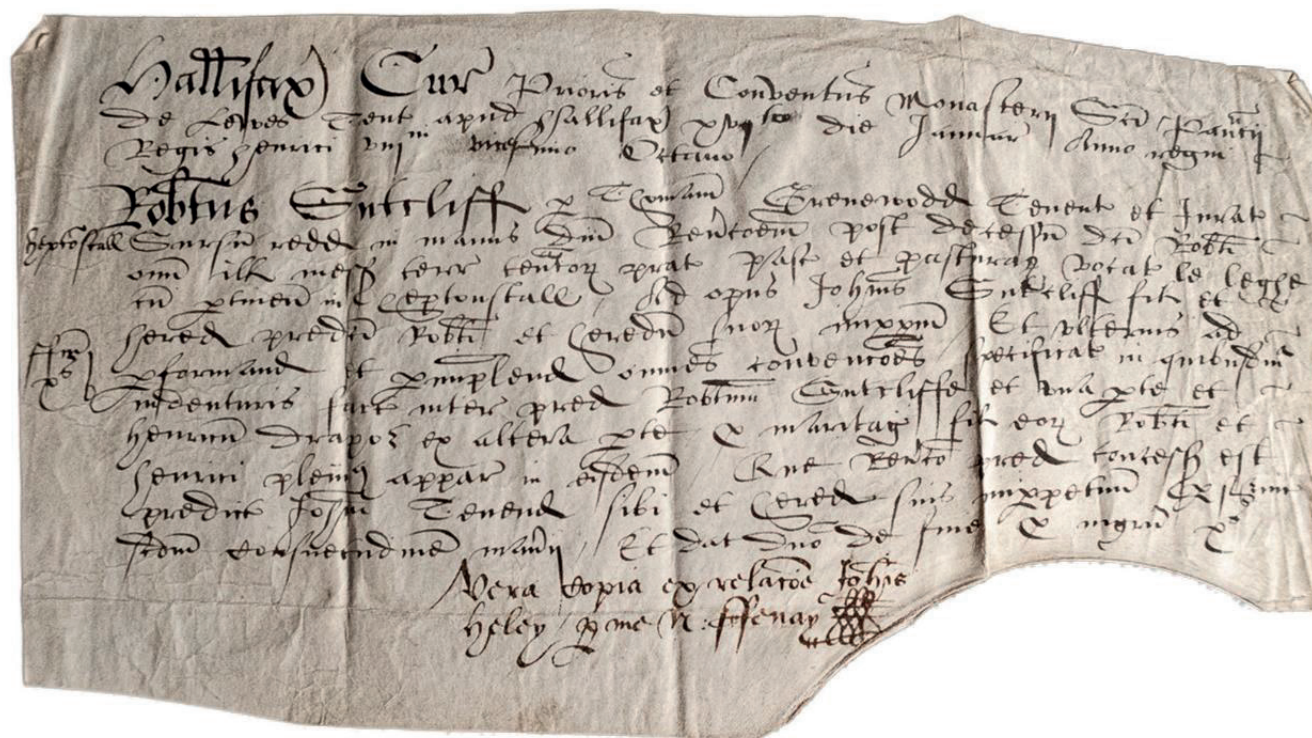 Hallifax Cur Prioris et Conventus Monasterij Sci Pancij
de Lewes Tent apud Hallifax xvj die Januar Anno regni
Regis henrici viij vicesimo Octavo
Robtus Sutcliff p Thomam Grenewodd Tenent et Jurat
heptonstall Sursu redd in manus Dni Revcoem post decessu dci Robti
om ill mess terr prat past et pasturar vocat le leghe
cu ptinen in heptonstall Ad opus Johnis Sutcliff fil et
hered predci Robti et heredu suor imppm Et ulterius ad
pformand et pimplend omnes convencoes specificat in quibusdm
indenturis fact inter pred Robtum Sutcliffe ex una pte et
henricu drapor ex altera pte p maritag fil eor Robti et
henrici pleni appar in eisdem Que Revco pred concess est
predict Johni Tenend sibi et hered suis imppetuum
scdm consuetudine manij Et dat dno de fine p ingru xs
Vera Copia ex relacoe Johis
Heley p me N: ffenay